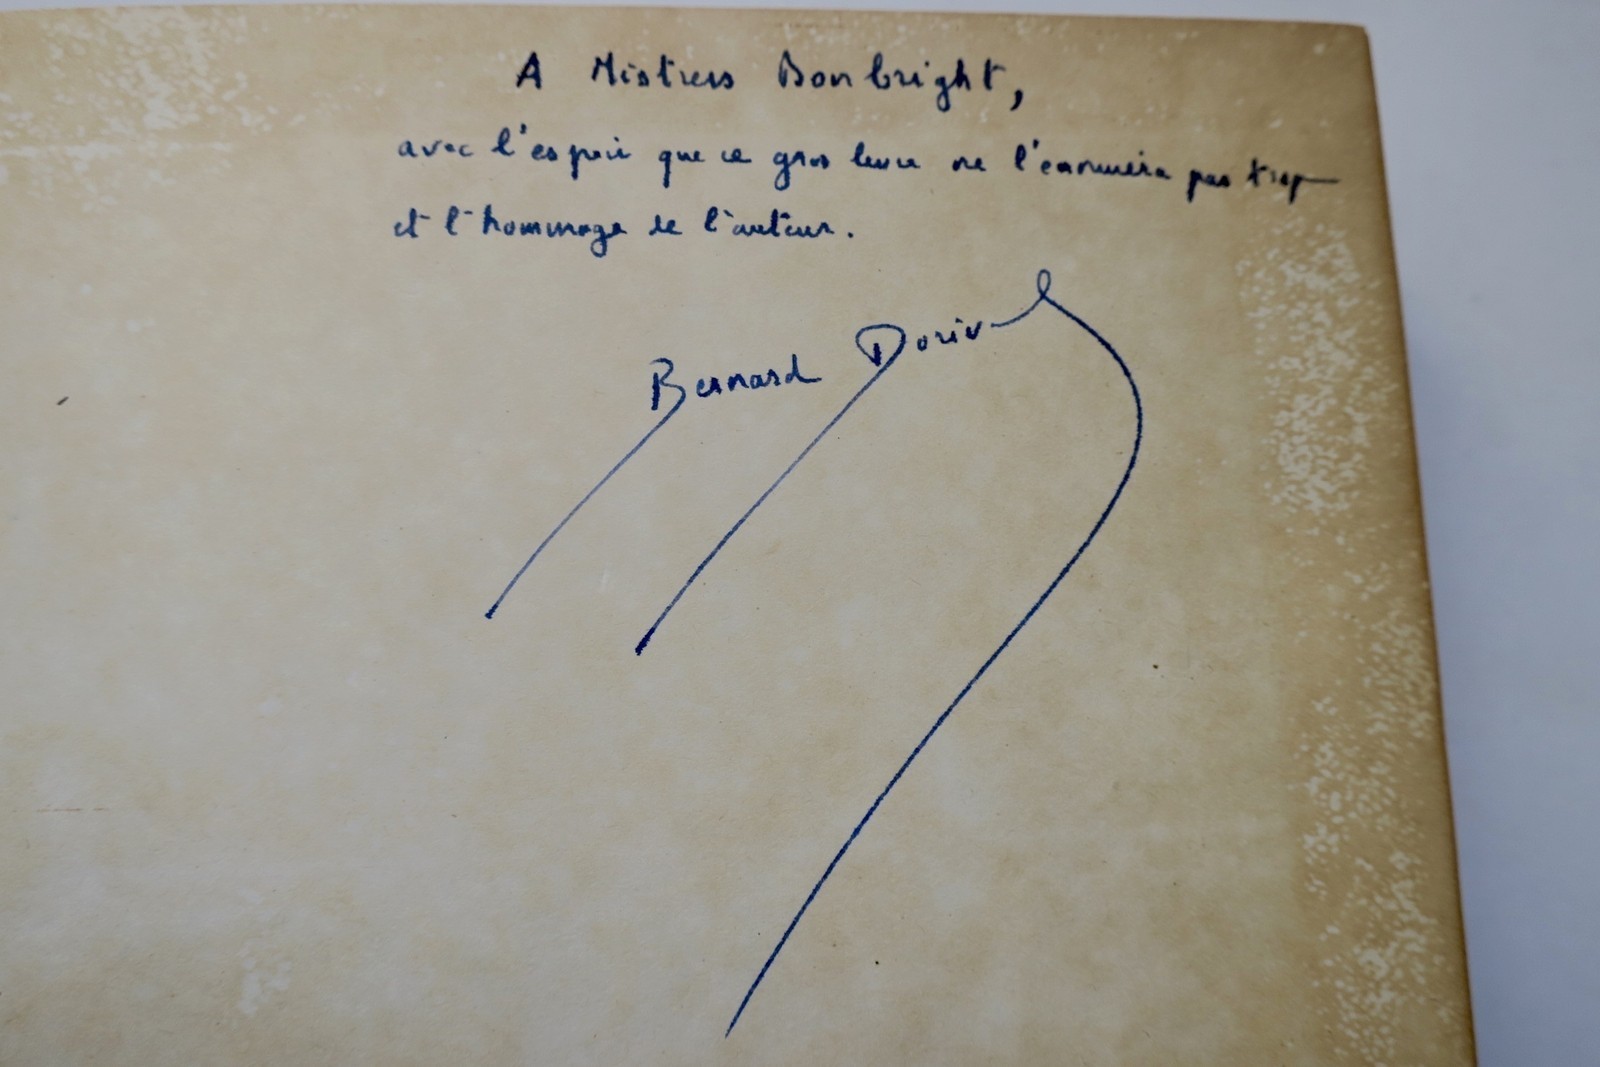 A Mistress Bonbright,
avec l'espoir que ce gros livre ne l'ennuiera pas trop
et l'hommage de l'auteur.
Bernard Dorival